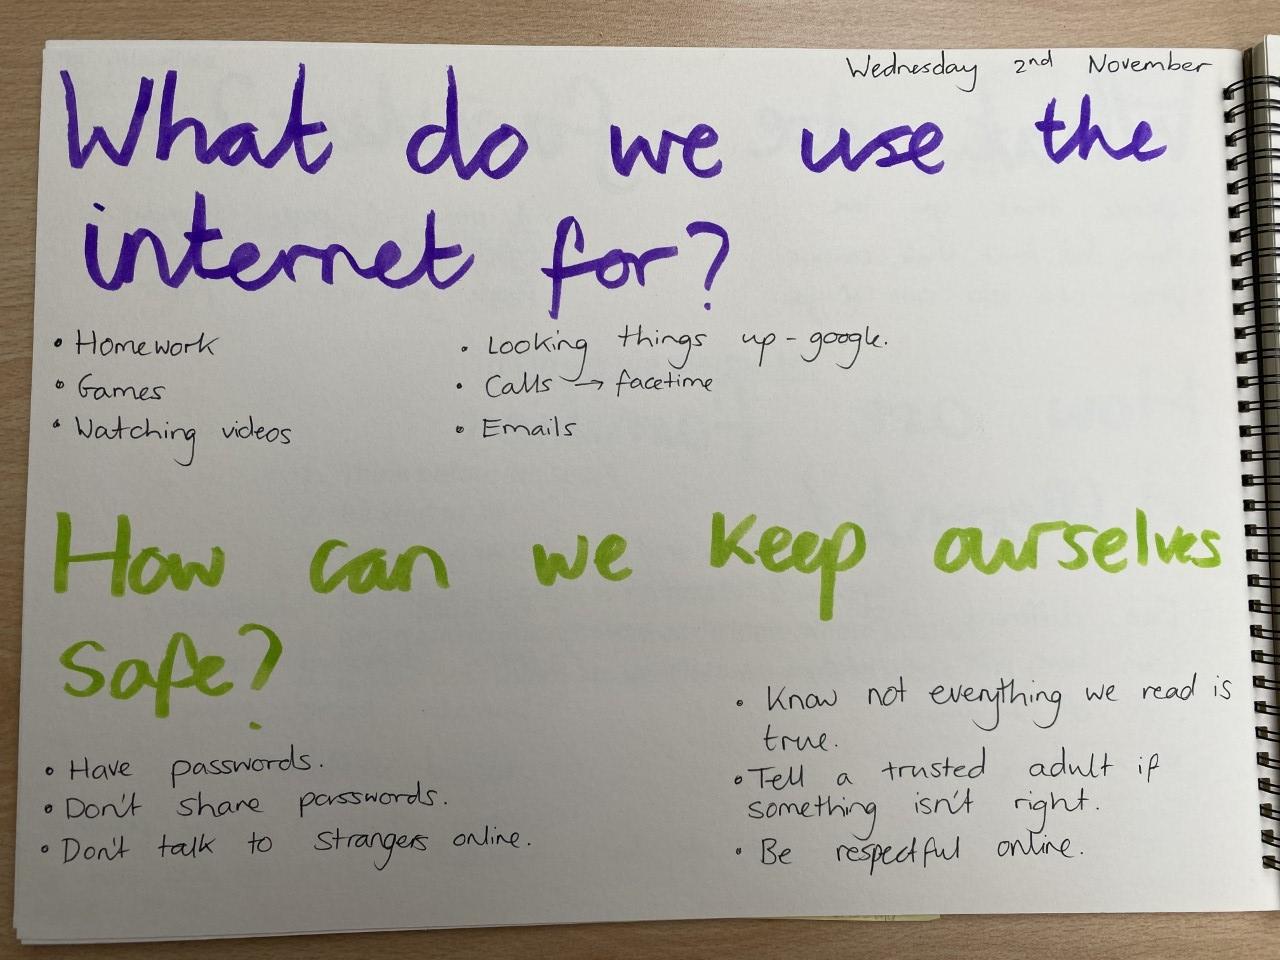 Wednesday 2nd November
What do we use the
internet for?
• Homework
• Games
• Watching videos
• Looking things up - google.
• Calls → facetime
• Emails
How can we keep ourselves
safe?
• Have passwords.
• Don't share passwords.
• Don't talk to strangers online.
• Know not everything we read is
true.
• Tell a trusted adult if
something isn't right.
• Be respectful online.